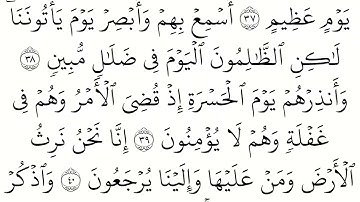 يَوۡمٍ عَظِيمٍ ٣٧ أَسۡمِعۡ بِهِمۡ وَأَبۡصِرۡ يَوۡمَ يَأۡتُونَنَا
لَٰكِنِ ٱلظَّٰلِمُونَ ٱلۡيَوۡمَ فِي ضَلَٰلٖ مُّبِينٖ ٣٨
وَأَنذِرۡهُمۡ يَوۡمَ ٱلۡحَسۡرَةِ إِذۡ قُضِيَ ٱلۡأَمۡرُ وَهُمۡ فِي
غَفۡلَةٖ وَهُمۡ لَا يُؤۡمِنُونَ ٣٩ إِنَّا نَحۡنُ نَرِثُ
ٱلۡأَرۡضَ وَمَنۡ عَلَيۡهَا وَإِلَيۡنَا يُرۡجَعُونَ ٤٠ وَٱذۡكُرۡ